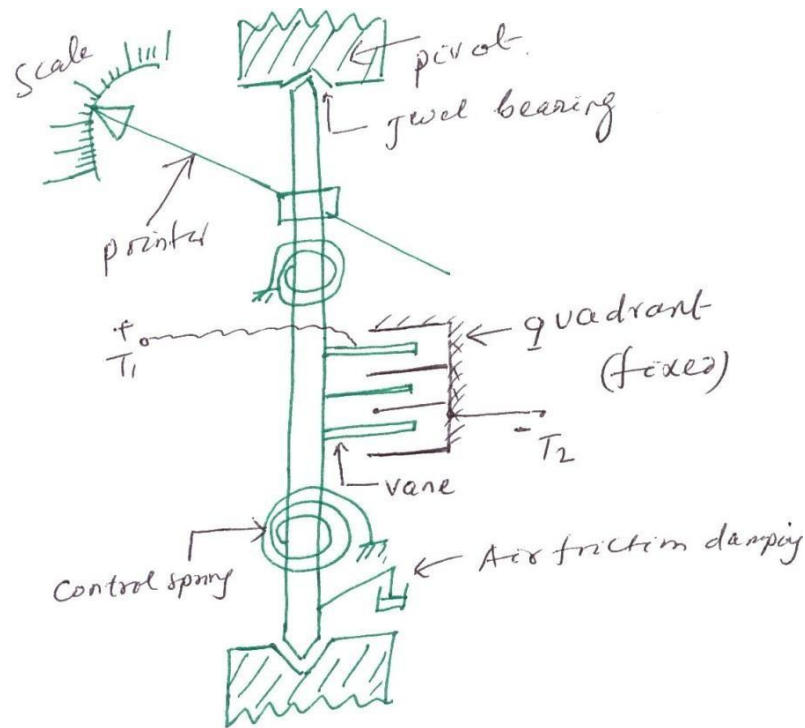 Scale
pivot.
Jwel bearing
pointer
+
T1
quadrant
(fixed)
- T2
vane
Control spring
Air friction damping